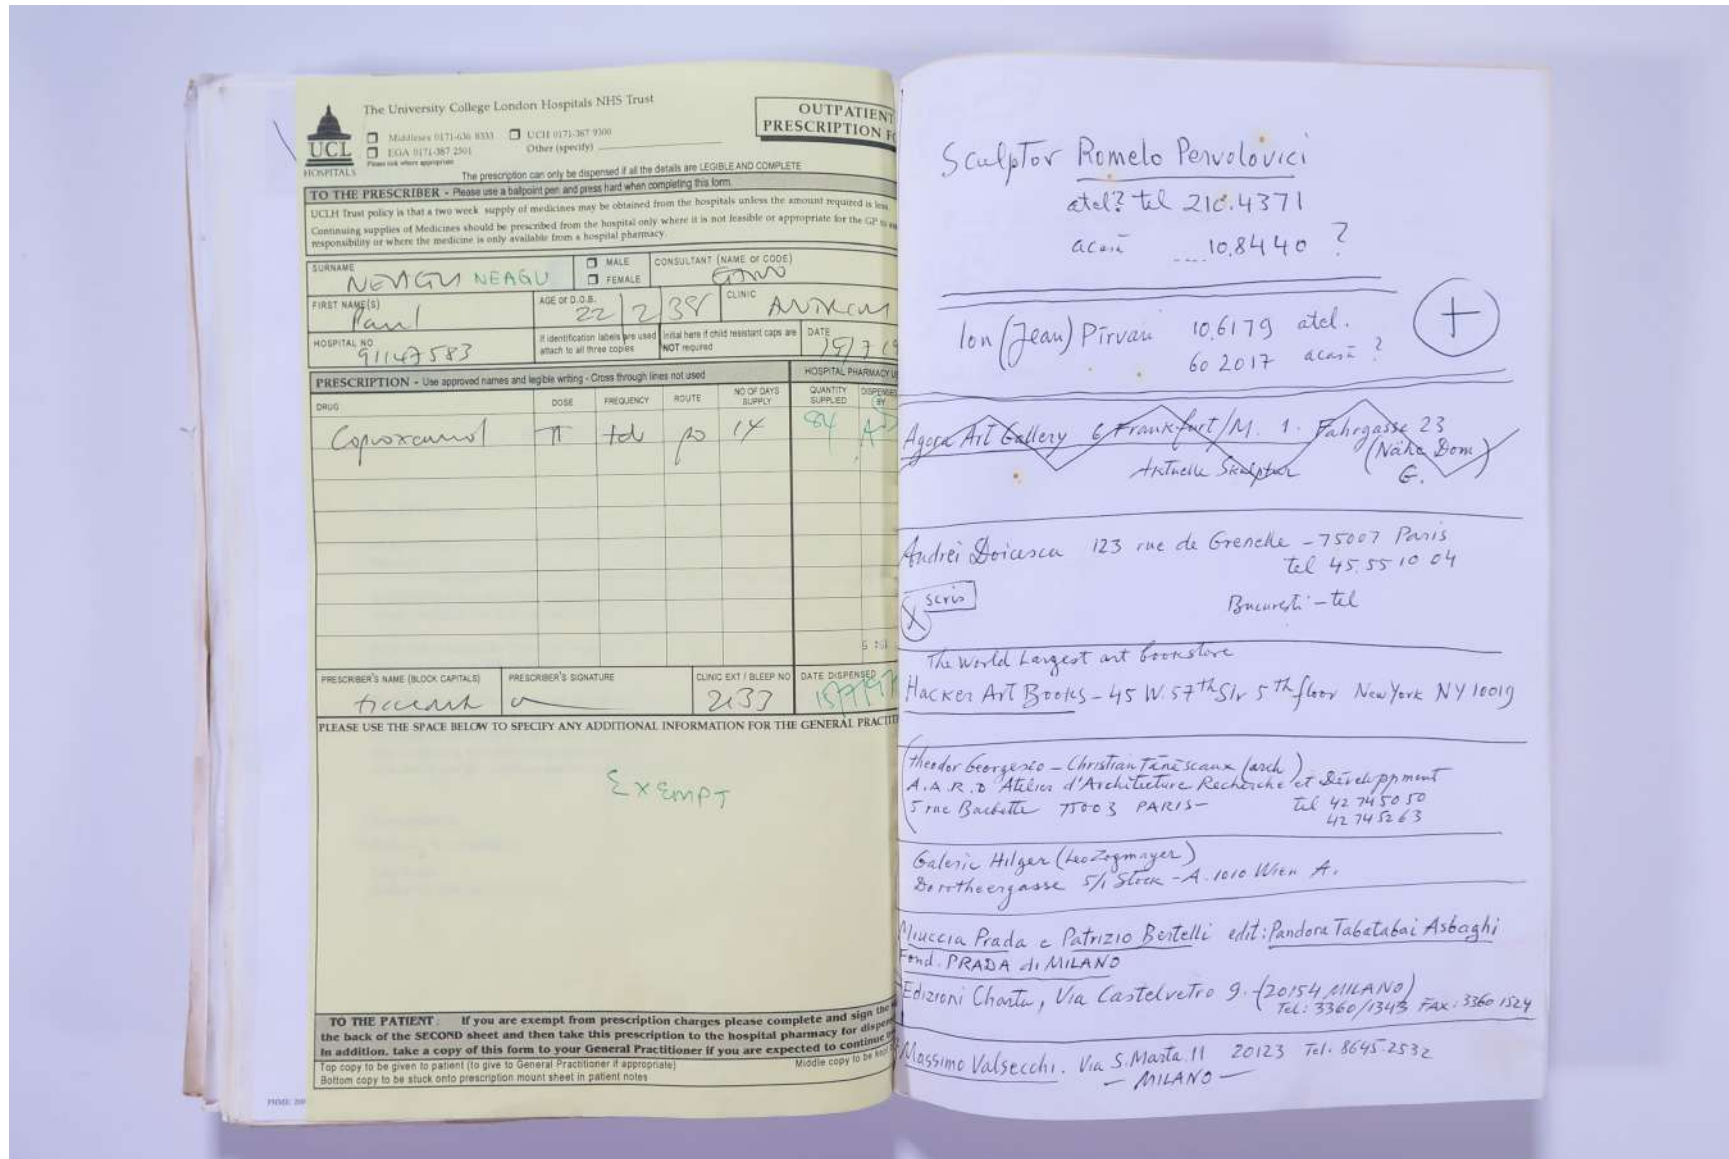 The University College London Hospitals NHS Trust
OUTPATIENT
PRESCRIPTION FO
UCL
HOSPITALS
Middlesex 0171-636 8333 UCH 0171-387 9300
EGA 0171-387 2501 Other (specify)
Please tick where appropriate
The prescription can only be dispensed if all the details are LEGIBLE AND COMPLETE
TO THE PRESCRIBER - Please use a ballpoint pen and press hard when completing this form.
UCLH Trust policy is that a two week supply of medicines may be obtained from the hospitals unless the amount required is less.
Continuing supplies of Medicines should be prescribed from the hospital only where it is not feasible or appropriate for the GP to
responsibility or where the medicine is only available from a hospital pharmacy.
SURNAME
NEAGU NEAGU
MALE
FEMALE
CONSULTANT (NAME or CODE)
FIRST NAME(S)
Paul
AGE or D.O.B.
22/2/38
CLINIC
HOSPITAL NO
91147583
If identification labels are used attach to all three copies
Initial here if child resistant caps are NOT required
DATE
15/7/9
PRESCRIPTION - Use approved names and legible writing - Cross through lines not used
HOSPITAL PHARMACY U
DRUG DOSE FREQUENCY ROUTE NO OF DAYS SUPPLY QUANTITY SUPPLIED DISPENSED BY
Coproxamol II tds po 14 84
PRESCRIBER'S NAME (BLOCK CAPITALS)
PRESCRIBER'S SIGNATURE
CLINIC EXT / BLEEP NO
2133
DATE DISPENSED
15/7/97
PLEASE USE THE SPACE BELOW TO SPECIFY ANY ADDITIONAL INFORMATION FOR THE GENERAL PRACTIT
EXEMPT
TO THE PATIENT: If you are exempt from prescription charges please complete and sign the
the back of the SECOND sheet and then take this prescription to the hospital pharmacy for dispen
In addition, take a copy of this form to your General Practitioner if you are expected to continue
Top copy to be given to patient (to give to General Practitioner if appropriate)
Middle copy to be kept
Bottom copy to be stuck onto prescription mount sheet in patient notes
Sculptor Romelo Pervolovici
atel? tel 210.4371
acasă ....10.8440 ?
Ion (Jean) Pîrvan 10.6179 atel.
60 2017 acasă ?
+
Agora Art Gallery 6 Frankfurt/M. 1. Fahrgasse 23
(Nähe Dom)
Aktuelle Skulptur
G.
Andrei Doicescu 123 rue de Grenelle - 75007 Paris
tel 45.55 10 04
scris
X
București - tel
The World Largest art bookstore
Hacker Art Books - 45 W. 57th Str 5th floor New York NY 10019
Theodor Georgesco - Christian Tănăscaux (arch)
A.A.R.D Atelier d'Architecture Recherche et Développment
5 rue Barbette 75003 PARIS - tel 42 74 50 50
42 74 52 63
Galerie Hilger (Leo Zogmayer)
Dorotheergasse 5/1 Stock - A. 1010 Wien A.
Miuccia Prada e Patrizio Bertelli edit: Pandora Tabatabai Asbaghi
Fond. PRADA di MILANO
Edizioni Charta, Via Castelvetro 9. - (20154 MILANO)
Tel: 3360/1343 FAX: 3360.1524
Massimo Valsecchi. Via S. Marta. 11 20123 Tel. 8645.2532
- MILANO -